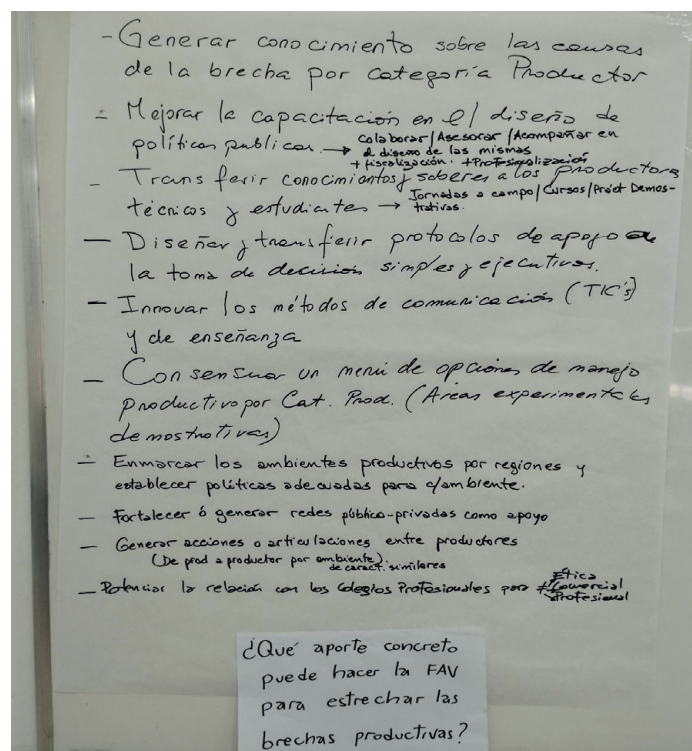 - Generar conocimiento sobre las causas
de la brecha por categoría Productor
- Mejorar la capacitación en el diseño de
políticas publicas. → Colaborar/Asesorar/Acompañar en
el diseño de las mismas
+ fiscalización. + Profesionalización
- Transferir conocimientos y saberes a los productores
técnicos y estudiantes → Jornadas a campo/Cursos/Proiet Demos-
trativas.
- Diseñar y transferir protocolos de apoyo a
la toma de decisión simples y ejecutivas.
- Innovar los métodos de comunicación (TIC's)
y de enseñanza
- Consensuar un menú de opciones de manejo
productivo por Cat. Prod. (Áreas experimentales
demostrativas)
- Enmarcar los ambientes productivos por regiones y
establecer políticas adecuadas para c/ambiente.
- Fortalecer ó generar redes público-privadas como apoyo
- Generar acciones o articulaciones entre productores
(De prod a productor por ambiente).
de caract. similares
- Potenciar la relación con los Colegios Profesionales para + Ética
Comercial
Profesional
¿Qué aporte concreto
puede hacer la FAV
para estrechar las
brechas productivas?